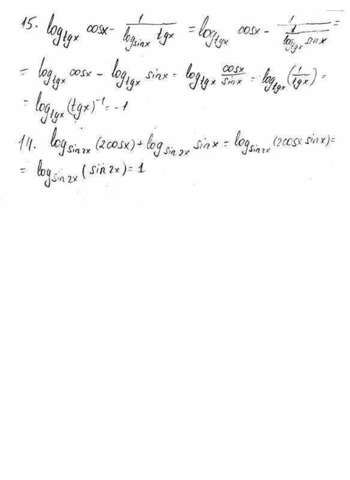 15. log_tgx cosx - 1/(log_sinx tgx) = log_tgx cosx - 1/(1/(log_tgx sinx)) =
= log_tgx cosx - log_tgx sinx = log_tgx cosx/sinx = log_tgx (1/tgx) =
= log_tgx (tgx)^-1 = -1
14. log_sin2x (2cosx) + log_sin2x sinx = log_sin2x (2cosx sinx) =
= log_sin2x (sin2x) = 1